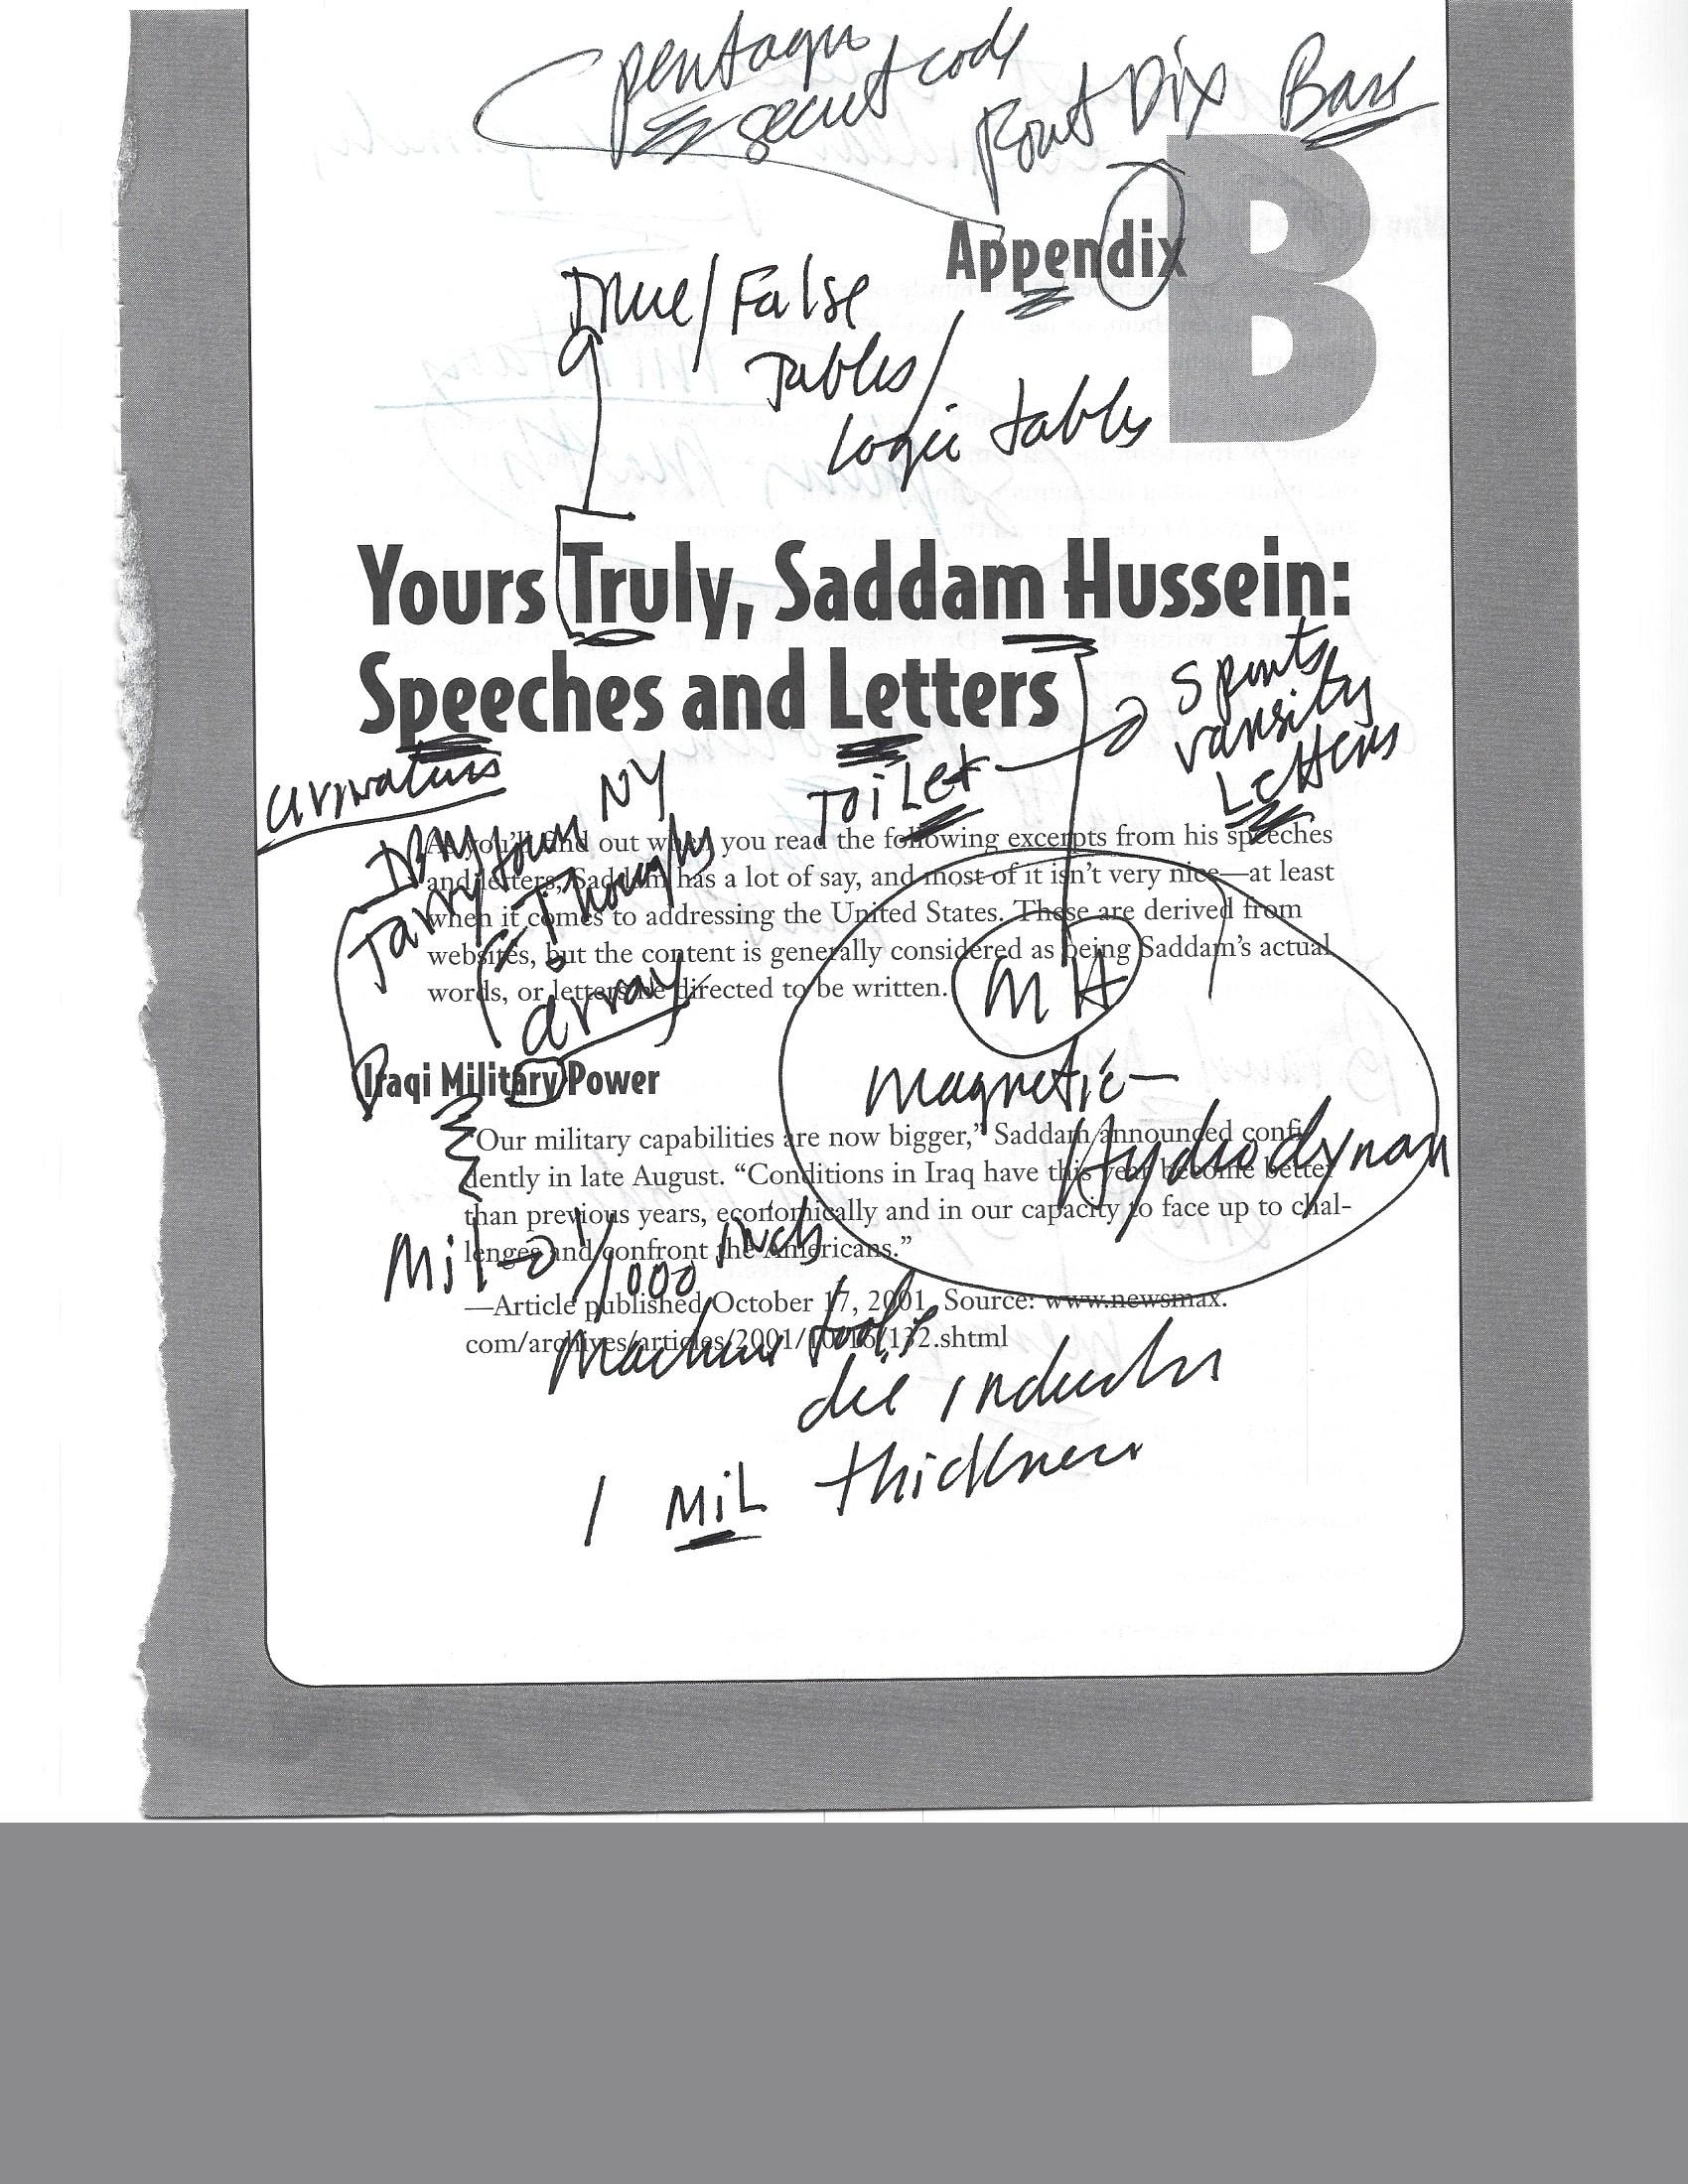 pentagon
secret code
Fort Dix Base
Appendix
B
True/False
Tables/
Logic tables
Yours Truly, Saddam Hussein:
Speeches and Letters
sports
varsity
Letters
Toilet
NY
Tarrytown
Thoughts
array
As you'll find out when you read the following excerpts from his speeches
and letters, Saddam has a lot of say, and most of it isn't very nice—at least
when it comes to addressing the United States. These are derived from
websites, but the content is generally considered as being Saddam's actual
words, or letters he directed to be written.
MH
Magnetic-
Hydrodynam
Iraqi Military Power
"Our military capabilities are now bigger," Saddam announced confi-
dently in late August. "Conditions in Iraq have this year become better
than previous years, economically and in our capacity to face up to chal-
lenges and confront the Americans."
Mil → 1/1000 inch
—Article published October 17, 2001. Source: www.newsmax.
com/archives/articles/2001/10/16/132.shtml
Machine tools
die
thickness
1 MiL